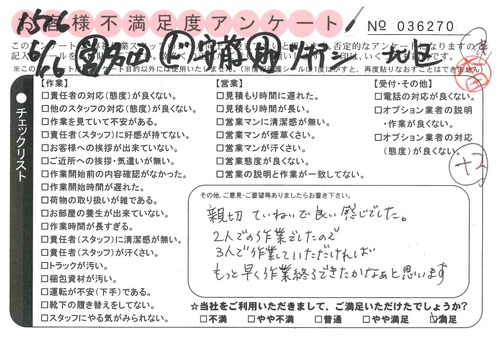 1566
お客様不満足度アンケート
№ 036270
6/16
チェックリスト
【作業】
□責任者の対応(態度)が良くない。
□他のスタッフの対応(態度)が良くない。
□作業を見ていて不安がある。
□責任者(スタッフ)に好感が持てない。
□お客様への挨拶が出来ていない。
□ご近所への挨拶・気遣いが無い。
□作業開始前の内容確認がなかった。
□作業開始時間が遅れた。
□荷物の取り扱いが雑である。
□お部屋の養生が出来ていない。
□作業時間が長すぎる。
□責任者(スタッフ)に清潔感が無い。
□責任者(スタッフ)が汗くさい。
□トラックが汚い。
□梱包資材が汚い。
□運転が不安(下手)である。
□靴下の履き替えをしてない。
□スタッフにやる気がみられない。
【営業】
□見積もり時間に遅れた。
□見積もり時間が長い。
□営業マンに清潔感が無い。
□営業マンが煙草くさい。
□営業マンが汗くさい。
□営業態度が良くない。
□営業の説明と作業が一致してない。
【受付・その他】
□電話の対応が良くない。
□オプション業者の説明
・作業が良くない。
□オプション業者の対応
(態度)が良くない。
+2
その他、ご意見・ご要望等ありましたらお書き下さい。
親切 ていねいで良い感じでした。
2人での作業でしたので
3人で作業していただければ
もっと早く作業終了できたかなぁと思います
☆当社をご利用いただきまして、ご満足いただけたでしょうか?
□不満 □やや不満 □普通 □やや満足 ☑満足